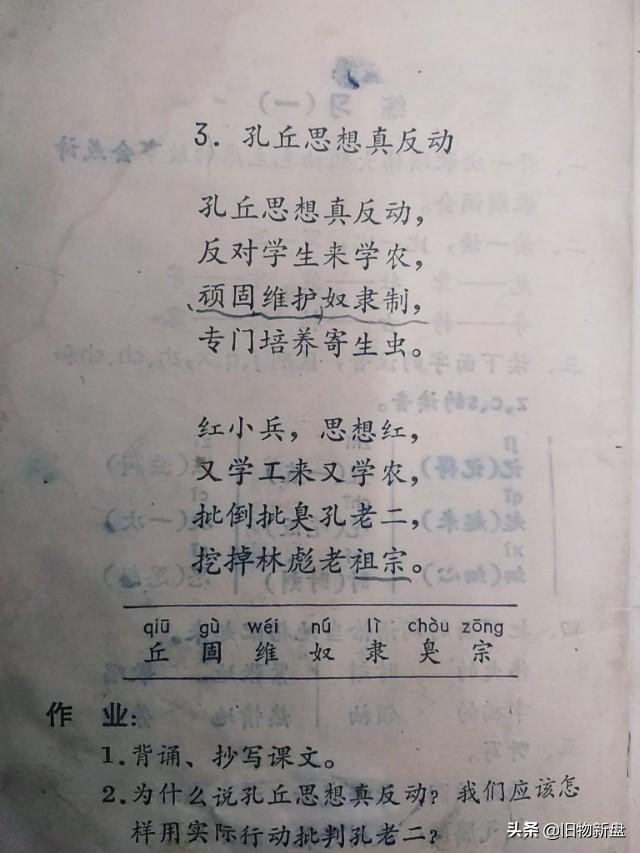 3. 孔丘思想真反动
孔丘思想真反动，
反对学生来学农，
顽固维护奴隶制，
专门培养寄生虫。
红小兵，思想红，
又学工来又学农，
批倒批臭孔老二，
挖掉林彪老祖宗。
qiū gù wéi nú lì chòu zōng
丘 固 维 奴 隶 臭 宗
作 业：
1. 背诵、抄写课文。
2. 为什么说孔丘思想真反动？我们应该怎
样用实际行动批判孔老二？
头条 @旧物新盘